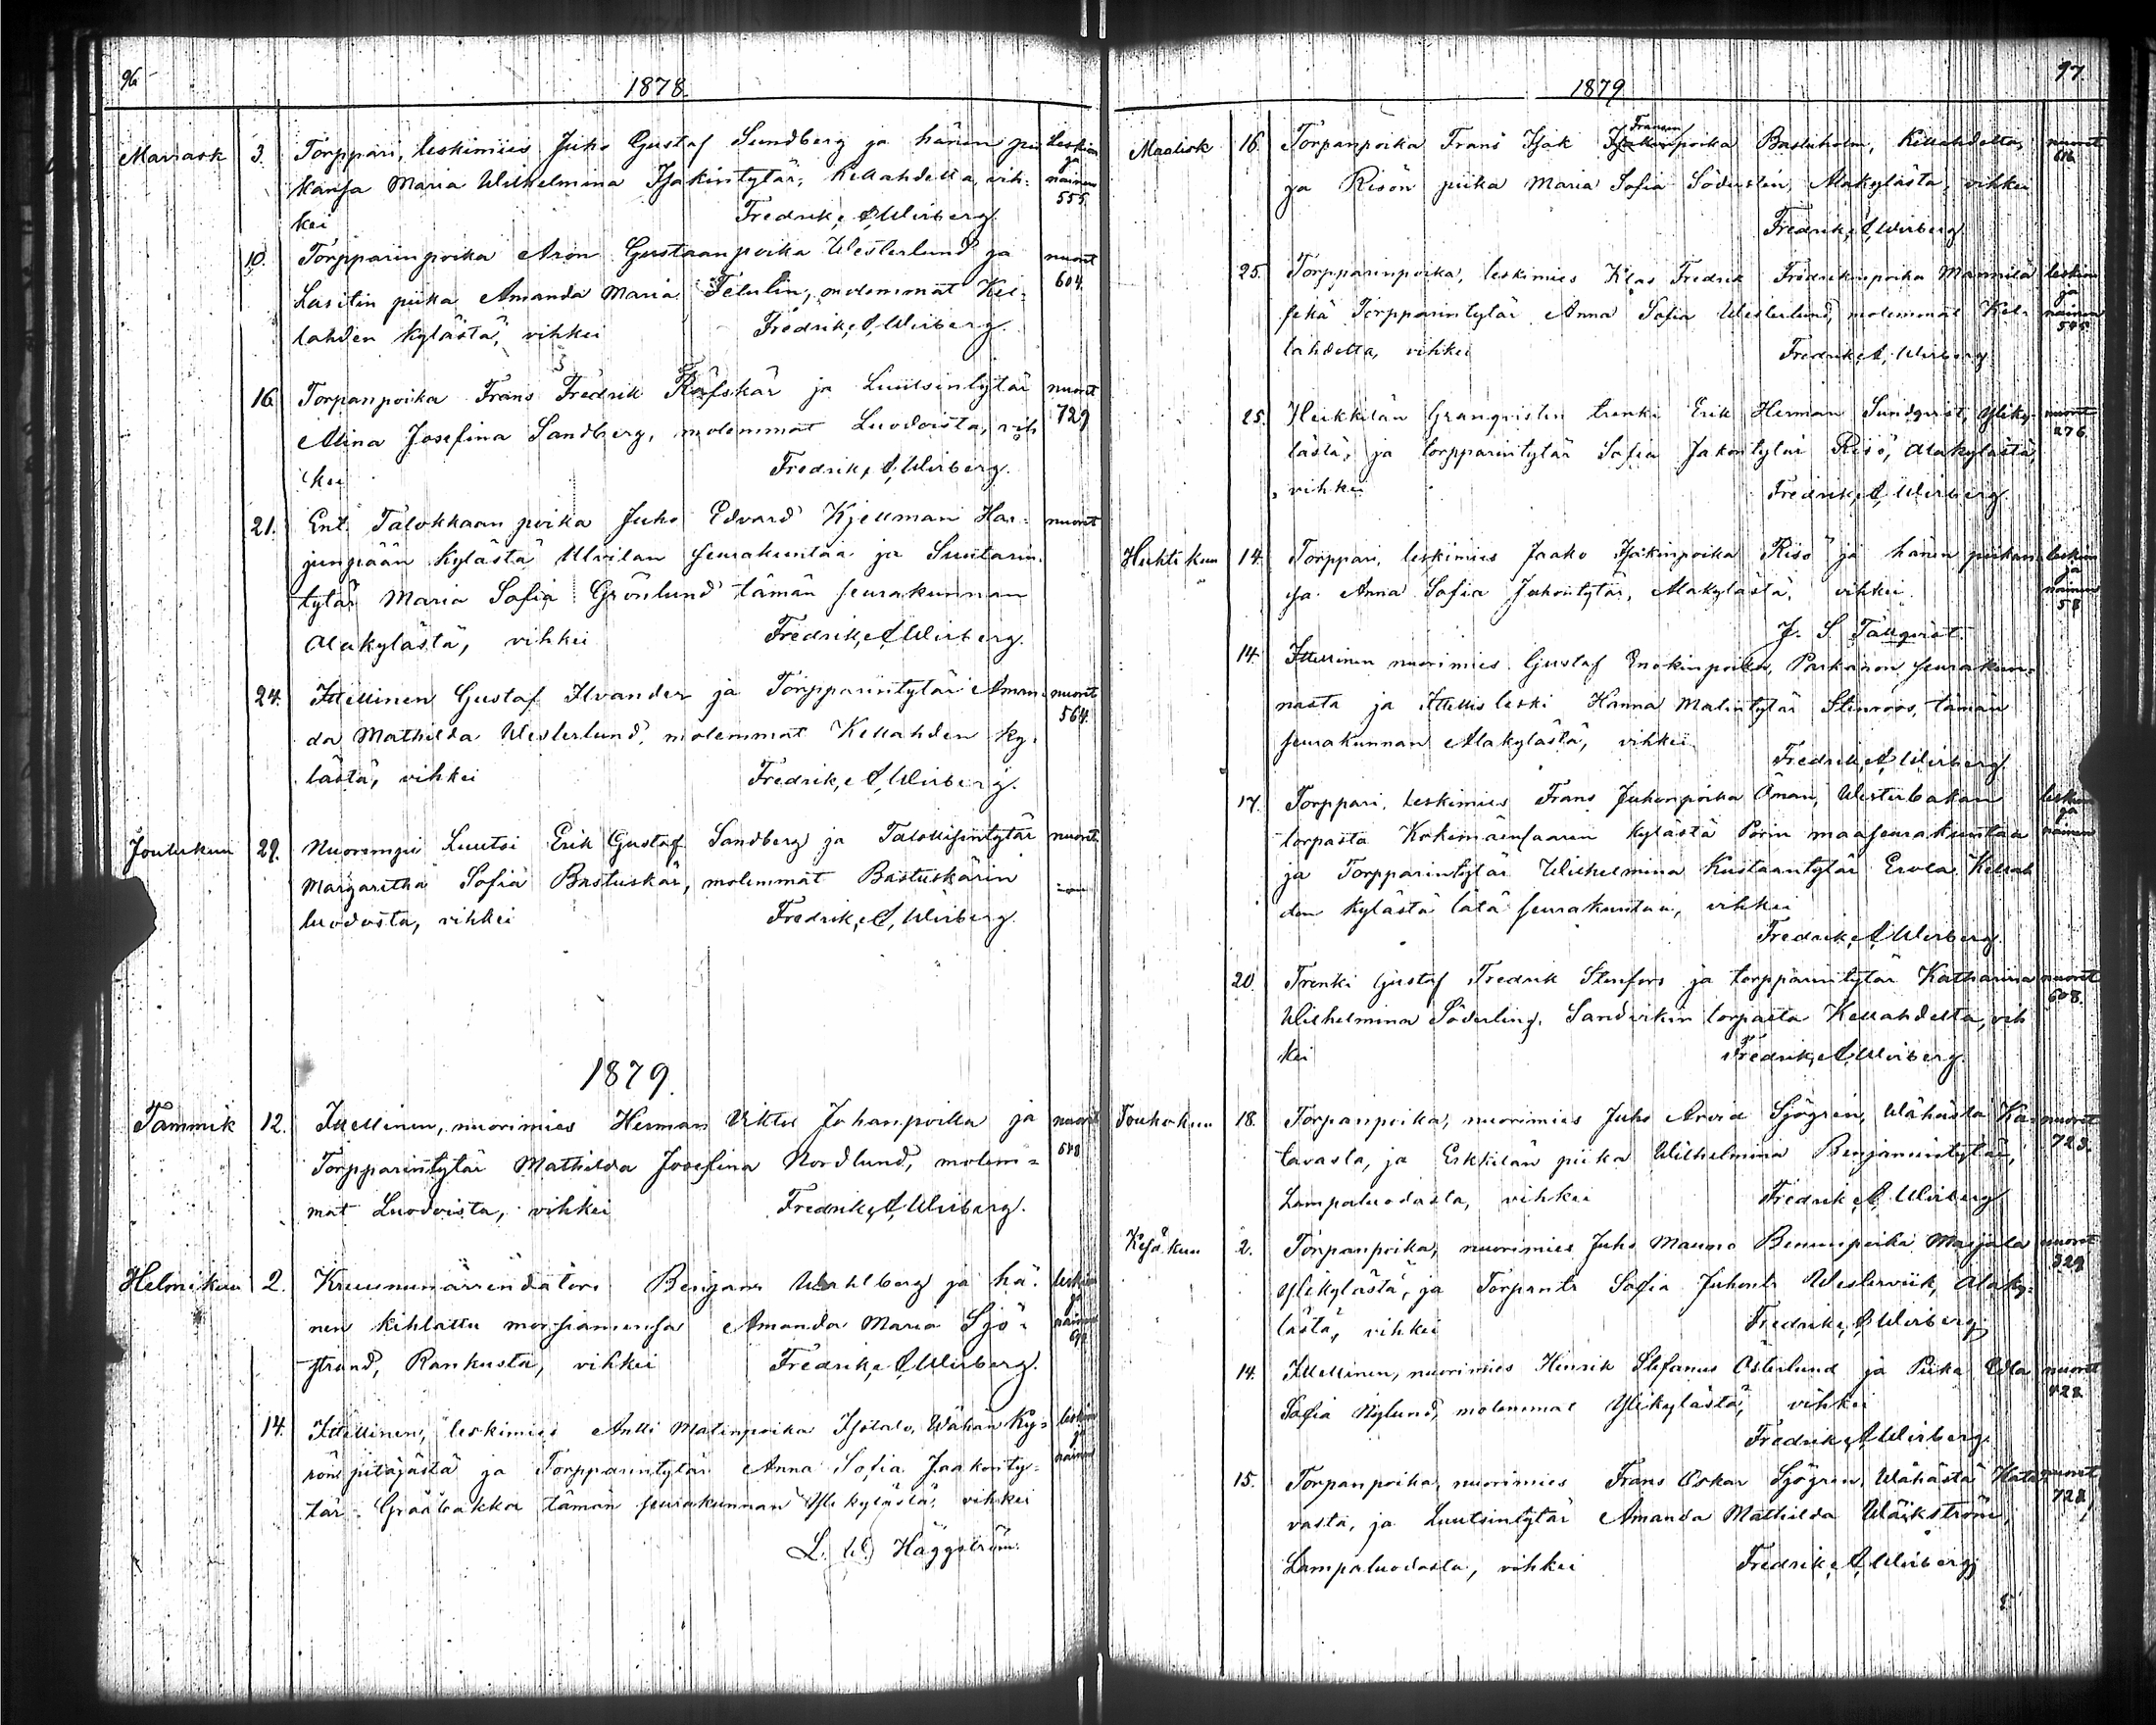 96
1878.
Marrask 3. Torppari, leskimies Juho Gustaf Sundberg ja hänen pii leskim
ja
kansa Maria Wilhelmina Isakintytär, Kellahdelta, vih- nainen
555.
kei Fredrik, A, Wirberg.
10. Torpparinpoika Aron Gustaanpoika Westerlund ja nuoret
Lasitin piika Amanda Maria Felulin, molemmat Kel- 604.
lahden kylästä, vihkei Fredrik, A, Wirberg.
16. Torpanpoika Frans Fredrik Räfskär ja Luutsintytär nuoret
Mina Josefina Sandberg, molemmat Luodoista, vih 729
kei Fredrik, A, Wirberg.
21. Ent. Talokkaan poika Juho Edvard Kjellman Har- nuoret
junpään kylästä Ulvilan seurakuntaa ja Suutarin-
tytär Maria Sofia Grönlund tämän seurakunnan
Alakylästä, vihkei Fredrik, A, Wirberg.
24. Itellinen Gustaf Ilvander ja Torpparintytär Aman- nuoret
564.
da Mathilda Westerlund, molemmat Kellahden ky-
lästä, vihkei Fredrik, A, Wirberg.
Joulukuu 29. Nuorempi Luutsi Erik Gustaf Sandberg ja Talollisentytär nuoret
Margaretha Sofia Bastuskär, molemmat Bastuskärin
luodosta, vihkei Fredrik, A, Wirberg.
1879.
Tammik 12. Itellinen, nuorimies Herman Viktor Juhanpoika ja nuoret
Torpparintytär Mathilda Josefina Nordlund, molem- 648
mat Luodoista, vihkei Fredrik, A, Wirberg.
Helmikuu 2. Kruununärrendatori Benjam Wahlberg ja hä- leskim
ja
nen kihlattu morsiamensa Amanda Maria Sjö- nainen
strand, Rankusta, vihkei Fredrik, A, Wirberg.
14. Itellinen, leskimies Antti Matinpoika Isotalo, Wähän Ky- leskim
ja
rön pitäjästä ja Torpparintytär Anna Sofia Jaakonty- nainen
tär Gråäbakka tämän seurakunnan Yli kylästä, vihkei
L. W. Häggström.
97.
1879
Fransin
Maalisk 16. Torpanpoika Frans Isak Isakinpoika Bastuholm, Kellahdelta, nuoret
616.
ja Risön piika Maria Sofia Söderstén, Alakylästä, vihkei
Fredrik, A, Wirberg
25. Torpparinpoika, leskimies Klas Fredrik Fredrikinpoika Mannila leskim
ja
sekä Torpparintytär Anna Sofia Westerlund, molemmat Kel- nainen
545.
lahdelta, vihkei Fredrik, A, Wirberg.
25. Heikkilän Granqvistin trenki Erik Herman Sundqvist, Yliky- nuoret
276.
lästä, ja torpparintytär Sofia Jakontytär Risö, Alakylästä,
vihkei Fredrik, A, Wirberg
Huhtikuu 14. Torppari, leskimies Jaako Isakinpoika Risö ja hänen piikan- leskim
ja
sa Anna Sofia Juhontytär, Alakylästä, vihkei nainen
58
J. S. Tallqvist.
14. Itellinen nuorimies Gustaf Enokinpoika, Parkanon seurakun-
nasta ja Itellis leski Hanna Matintytär Stenroos, tämän
seurakunnan Alakylästä, vihkei
Fredrik, A, Wirberg.
17. Torppari, leskimies Frans Juhonpoika Öman, Westerbakan leskim
ja
torpasta Kokemäensaaren kylästä Porin maaseurakuntaa nainen
ja Torpparintytär Wilhelmina Kustaantytär Erola Kellah
den kylästä tätä seurakuntaa, vihkei
Fredrik, A, Wirberg.
20. Trenki Gustaf Fredrik Stenfors ja torpparintytär Katharina nuoret
608.
Wilhelmina Söderling, Sandvikin torpasta Kellahdelta, vih
kei Fredrik, A, Wirberg.
Toukokuu 18. Torpanpoika, nuorimies Juho Arvid Sjögren, Wähästä Ka- nuoret
723.
tavasta, ja Erkkilän piika Wilhelmina Benjamintytär,
Lampaluodosta, vihkei Fredrik, A, Wirberg
Kesäkuu 2. Torpanpoika, nuorimies Juho Mauno Benninpoika Marjala nuoret
329
Ylikylästä, ja Torpantr Sofia Juhontr Westerviik, Alaky-
lästä, vihkei Fredrik, A, Wirberg.
14. Itellinen, nuorimies Henrik Stefanus Österlund ja Piika Edla nuoret
428
Sofia Nylund, molemmat Ylikylästä, vihkei
Fredrik, A, Wirberg.
15. Torpanpoika, nuorimies Frans Oskar Sjögren, Wähästä Kata nuoret
728,
vasta, ja Luutsintytär Amanda Mathilda Wäikström,
Lampaluodosta, vihkei Fredrik, A, Wirberg